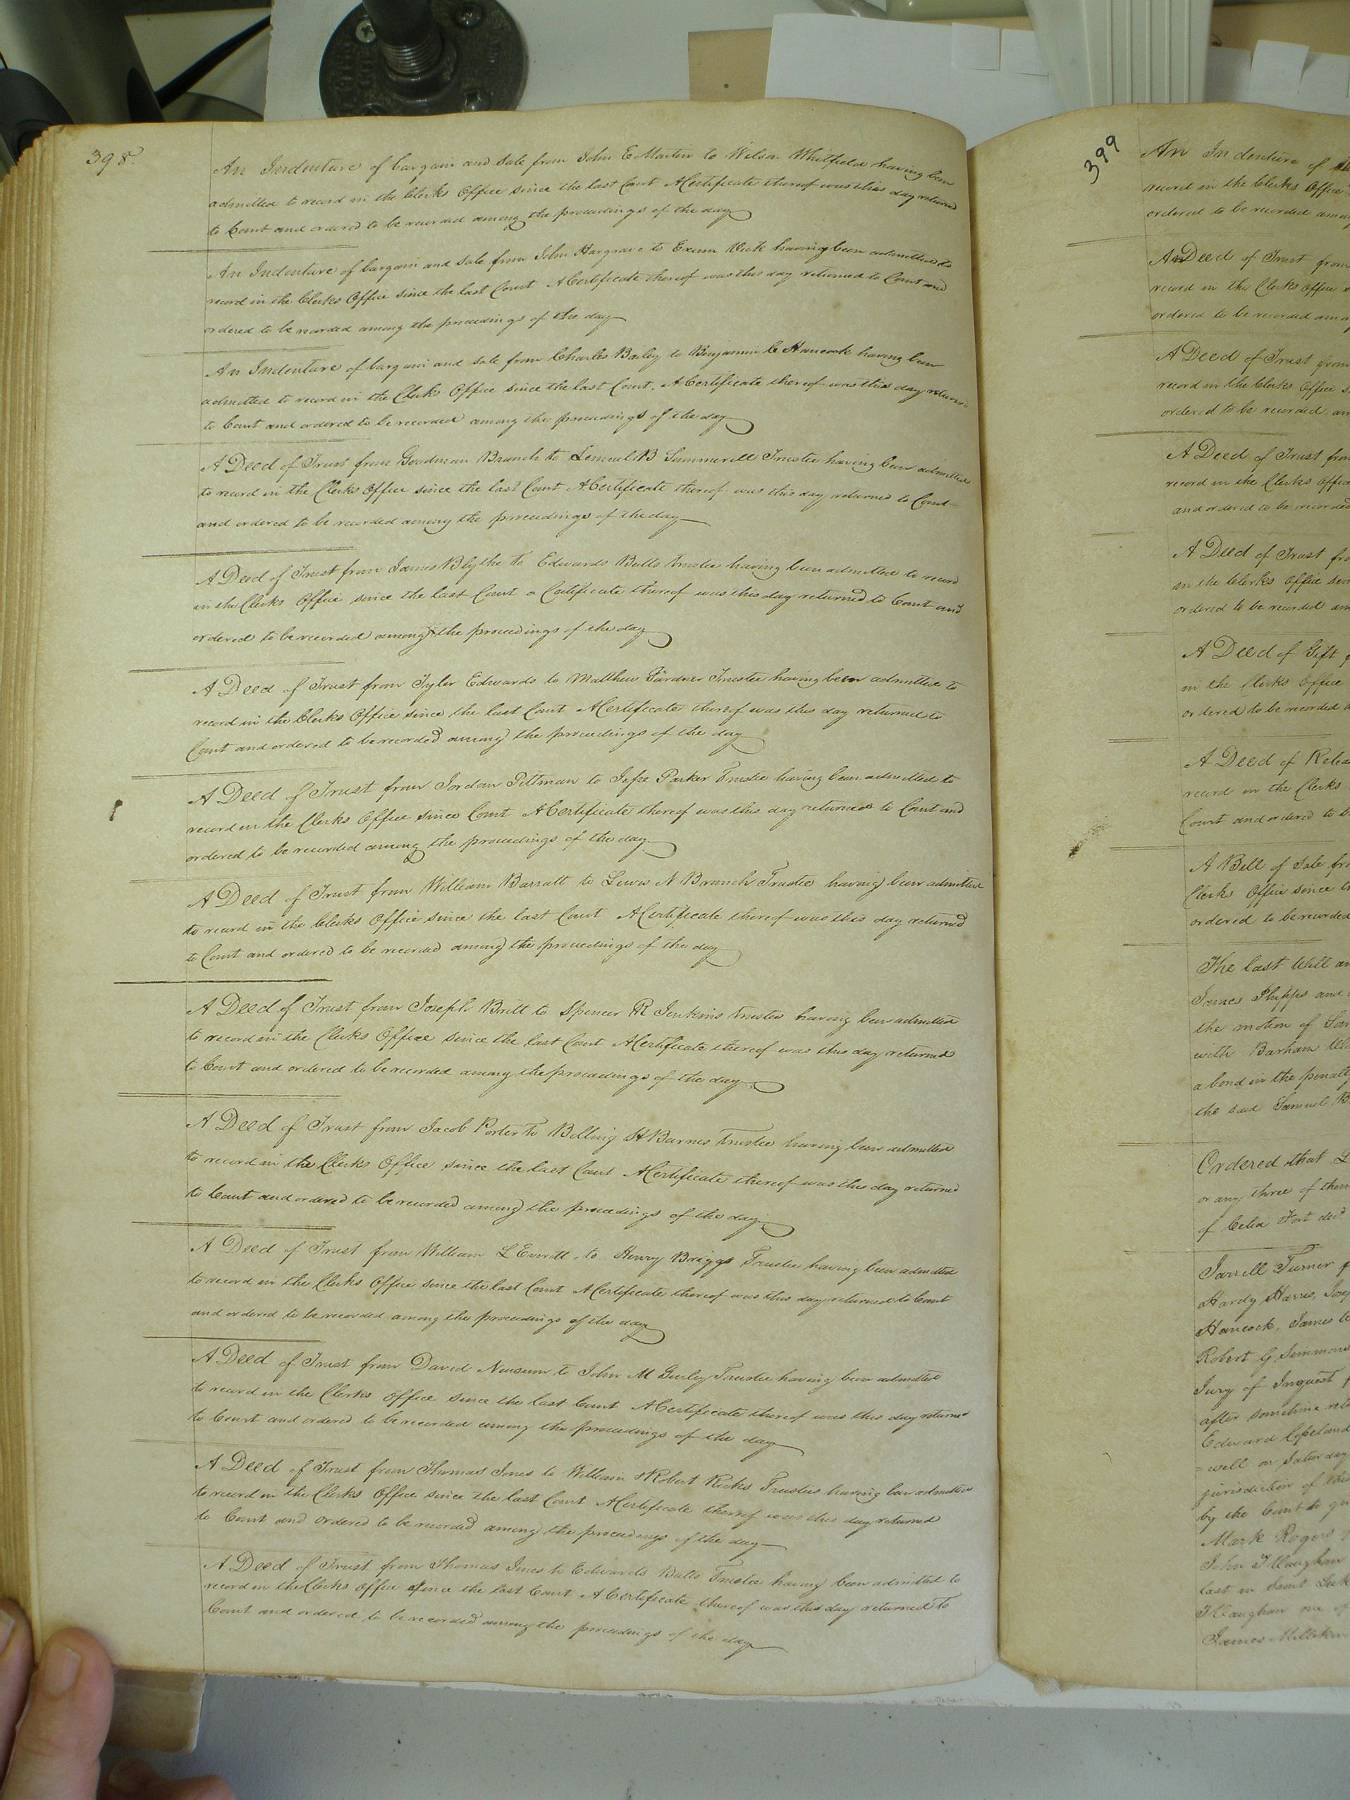 398.
An Indenture of bargain and sale from John E Martin to Wilson Whitfield having been
admitted to record in the Clerks Office since the last Court A Certificate thereof was this day returned
to Court and ordered to be recorded among the proceedings of the day
An Indenture of bargain and sale from John Hargrave to Exum Vick having been admitted to
record in the Clerks Office since the last Court A Certificate thereof was this day returned to Court and
ordered to be recorded among the proceedings of the day
An Indenture of bargain and sale from Charles Bailey to Benjamin C Hancock having been
admitted to record in the Clerks Office since the last Court. A Certificate thereof was this day returned
to Court and ordered to be recorded among the proceedings of the day
A Deed of Trust from Goodman Branch to Lemuel B Summerell Trustee having been admitted
to record in the Clerks Office since the last Court A Certificate thereof was this day returned to Court
and ordered to be recorded among the proceedings of the day
A Deed of Trust from James Blythe to Edwards Butts Trustee having been admitted to record
in the Clerks Office since the last Court a Certificate thereof was this day returned to Court and
ordered to be recorded among the proceedings of the day
A Deed of Trust from Tyler Edwards to Matthew Gardner Trustee having been admitted to
record in the Clerks Office since the last Court A Certificate thereof was this day returned to
Court and ordered to be recorded among the proceedings of the day
A Deed of Trust from Jordan Pittman to Jesse Parker Trustee having been admitted to
record in the Clerks Office since Court A Certificate thereof was this day returned to Court and
ordered to be recorded among the proceedings of the day
A Deed of Trust from William Barratt to Lewis N Branch Trustee having been admitted
to record in the Clerks Office since the last Court A Certificate thereof was this day returned
to Court and ordered to be recorded among the proceedings of the day
A Deed of Trust from Joseph Britt to Spencer R Jenkins trustee having been admitted
to record in the Clerks Office since the last Court A Certificate thereof was this day returned
to Court and ordered to be recorded among the proceedings of the day
A Deed of Trust from Jacob Porter To Bolling H Barnes Trustee having been admitted
to record in the Clerks Office since the last Court A Certificate thereof was this day returned
to Court and ordered to be recorded among the proceedings of the day
A Deed of Trust from William L Everitt to Henry Briggs Trustee having been admitted
to record in the Clerks Office since the last Court A Certificate thereof was this day returned to Court
and ordered to be recorded among the proceedings of the day
A Deed of Trust from David Newsum to John M Gurley Trustee having been admitted
to record in the Clerks Office since the last Court A Certificate thereof was this day returned
to Court and ordered to be recorded among the proceedings of the day
A Deed of Trust from Thomas Ines to William & Robert Ricks Trustees having been admitted
to record in the Clerks Office since the last Court A Certificate thereof was this day returned
to Court and ordered to be recorded among the proceedings of the day
A Deed of Trust from Thomas Ines to Edwards Butts Trustee having been admitted to
record in the Clerks Office since the last Court A Certificate thereof was this day returned to
Court and ordered to be recorded among the proceedings of the day
399
An Indenture of
record in the Clerks Office
ordered to be recorded among
A Deed of Trust from
record in the Clerks Office
ordered to be recorded among
A Deed of Trust from
record in the Clerks Office
ordered to be recorded
A Deed of Trust from
record in the Clerks Office
and ordered to be recorded
A Deed of Trust
in the Clerks Office
ordered to be recorded
A Deed of Gift
in the Clerks Office
ordered to be recorded
A Deed of Release
record in the Clerks
Court and ordered to be
A Bill of Sale
Clerks Office since
ordered to be recorded
The last Will
James Phipps and
the motion of
with Barham
a bond in the penalty
the said Samuel B
Ordered that
or any three of them
of Celia Fort decd
Jarrell Turner
Hardy Harris,
Hancock, James
Robert G Simmons
Jury of Inquest
after sometime
Edward Copeland
well on Saturday
jurisdiction of
by the Court
Mark Rogers
John T Vaughan
last in
T Vaughan one of
James Millikin